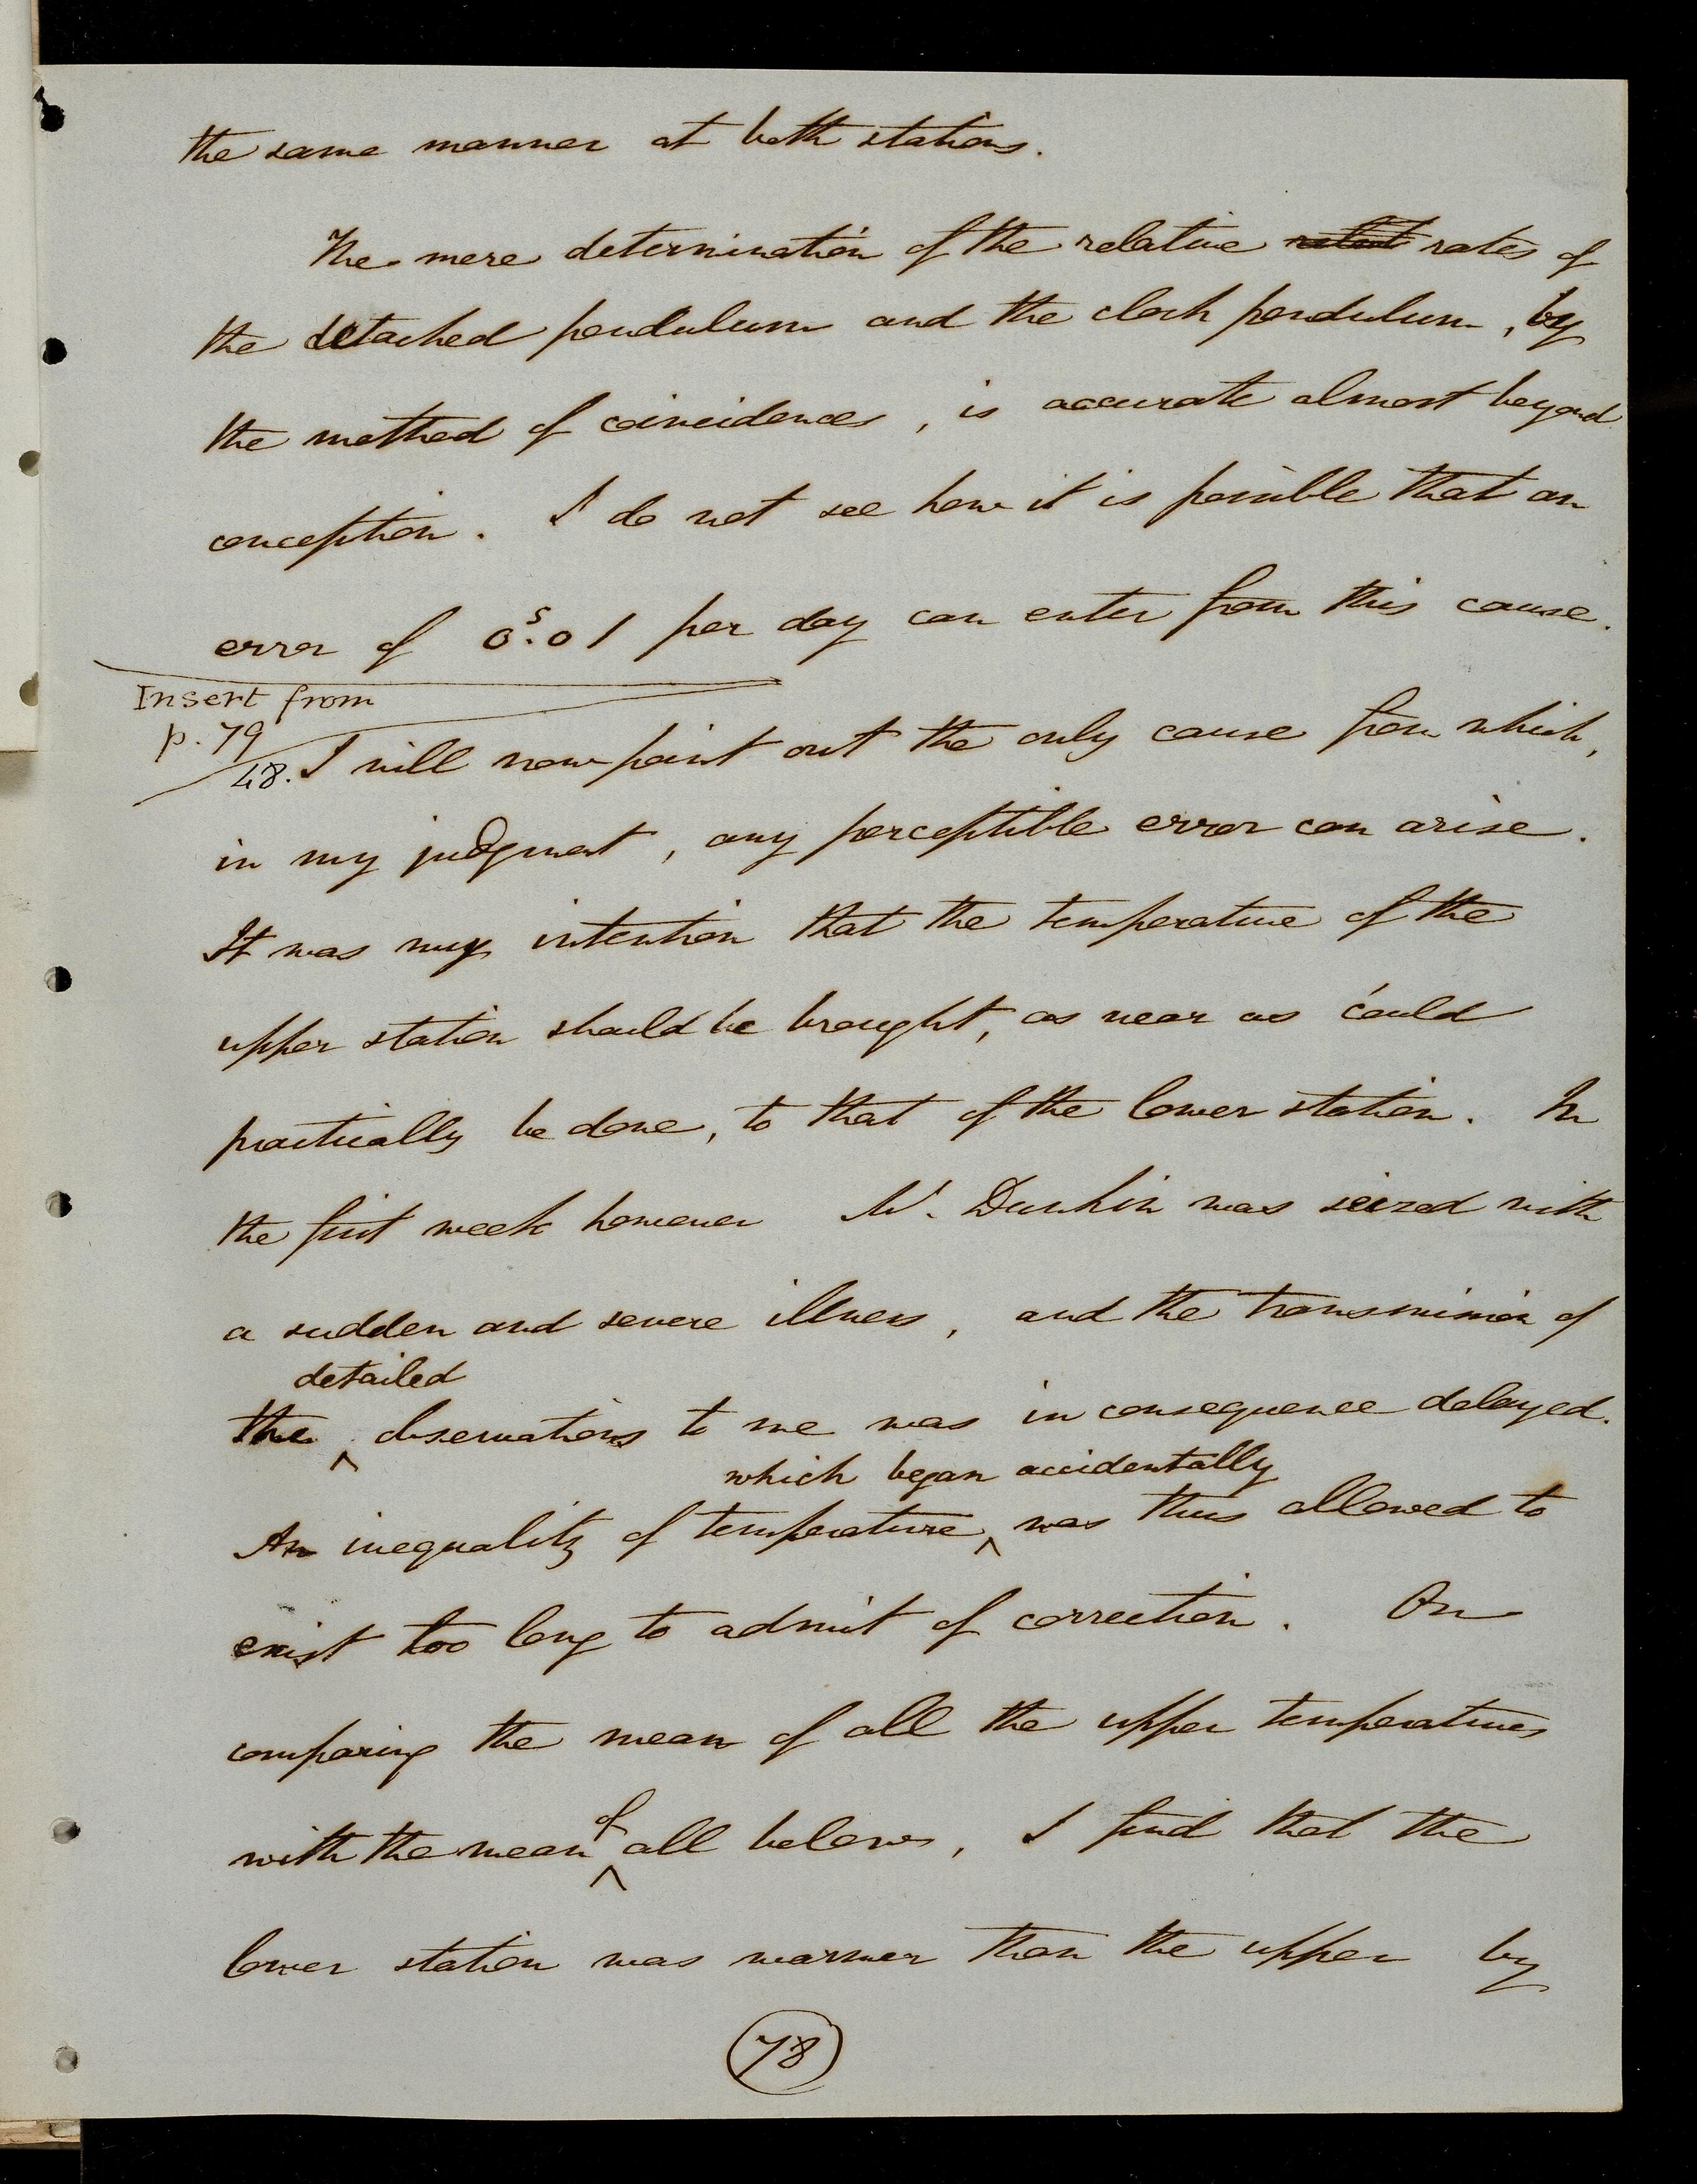 the same manner at both stations.
The mere determination of the relative rates of
the detached pendulum and the clock pendulum, by
the method of coincidences, is accurate almost beyond
conception. I do not see how it is possible that an
error of 0ˢ.01 per day can enter from this cause.
Insert from
p. 79
48. I will now point out the only cause from which,
in my judgment, any perceptible error can arise.
It was my intention that the temperature of the
upper station should be brought, as near as could
practically be done, to that of the lower station. In
the first week however Mr. Dunkin was seized with
a sudden and severe illness, and the transmission of
detailed
the ^ observations to me was in consequence delayed.
which began accidentally
An inequality of temperature ^ was thus allowed to
exist too long to admit of correction. On
comparing the mean of all the upper temperatures
of
with the mean ^ all below, I find that the
lower station was warmer than the upper by
78